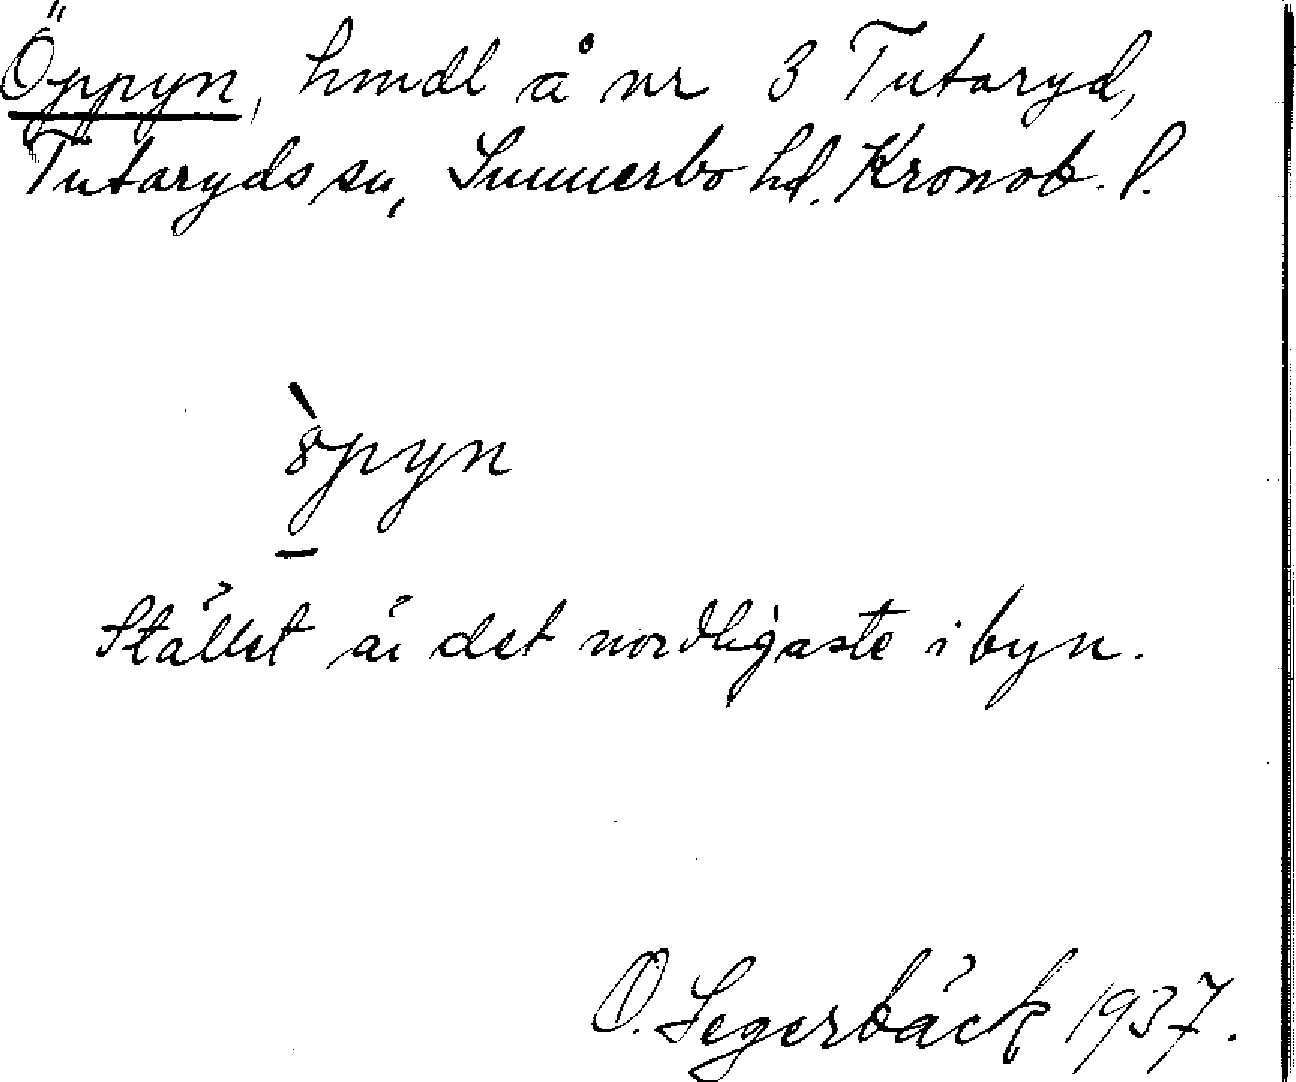 Öppyn, hmdl å nr 3 Tutaryd,
Tutaryds sn, Sunnerbo hd. Kronob. l.
öpyn
Stället är det nordligaste i byn.
O. Segerbäck 1937.